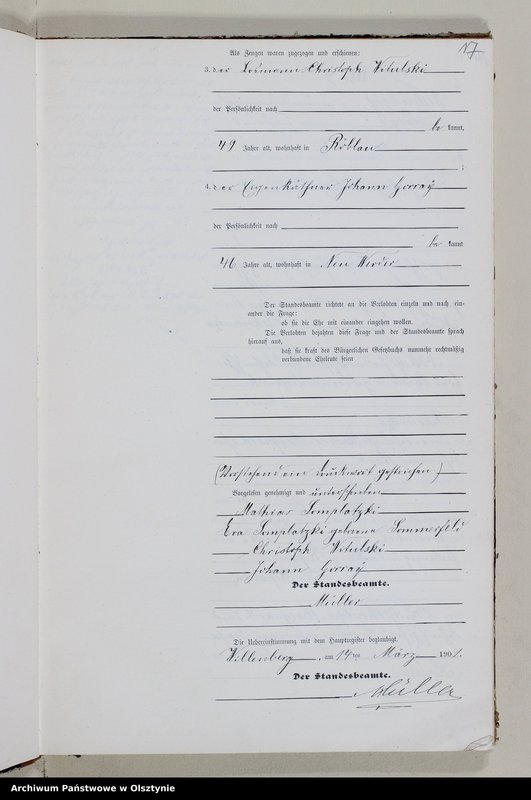 17
Als Zeugen waren zugezogen und erschienen:
3. der Losmann Christoph Witulski
der Persönlichkeit nach
be kannt,
49 Jahre alt, wohnhaft in Röblau
;
4. der Eigenkäthner Johann Gorray
der Persönlichkeit nach
be kannt
46 Jahre alt, wohnhaft in Neu Werder
Der Standesbeamte richtete an die Verlobten einzeln und nach ein-
ander die Frage:
ob sie die Ehe mit einander eingehen wollen.
Die Verlobten bejahten diese Frage und der Standesbeamte sprach
hierauf aus,
daß sie kraft des Bürgerlichen Gesetzbuchs nunmehr rechtmäßig
verbundene Eheleute seien
(Vorstehend ein Druckwort gestrichen)
Vorgelesen, genehmigt und unterschrieben
Mathias Somplatzki
Eva Somplatzki geborene Sommerfeld
Christoph Witulski
Johann Gorray
Der Standesbeamte.
Müller
Die Uebereinstimmung mit dem Hauptregister beglaubigt.
Willenberg, am 14ten März 1901.
Der Standesbeamte.
Müller
Archiwum Państwowe w Olsztynie